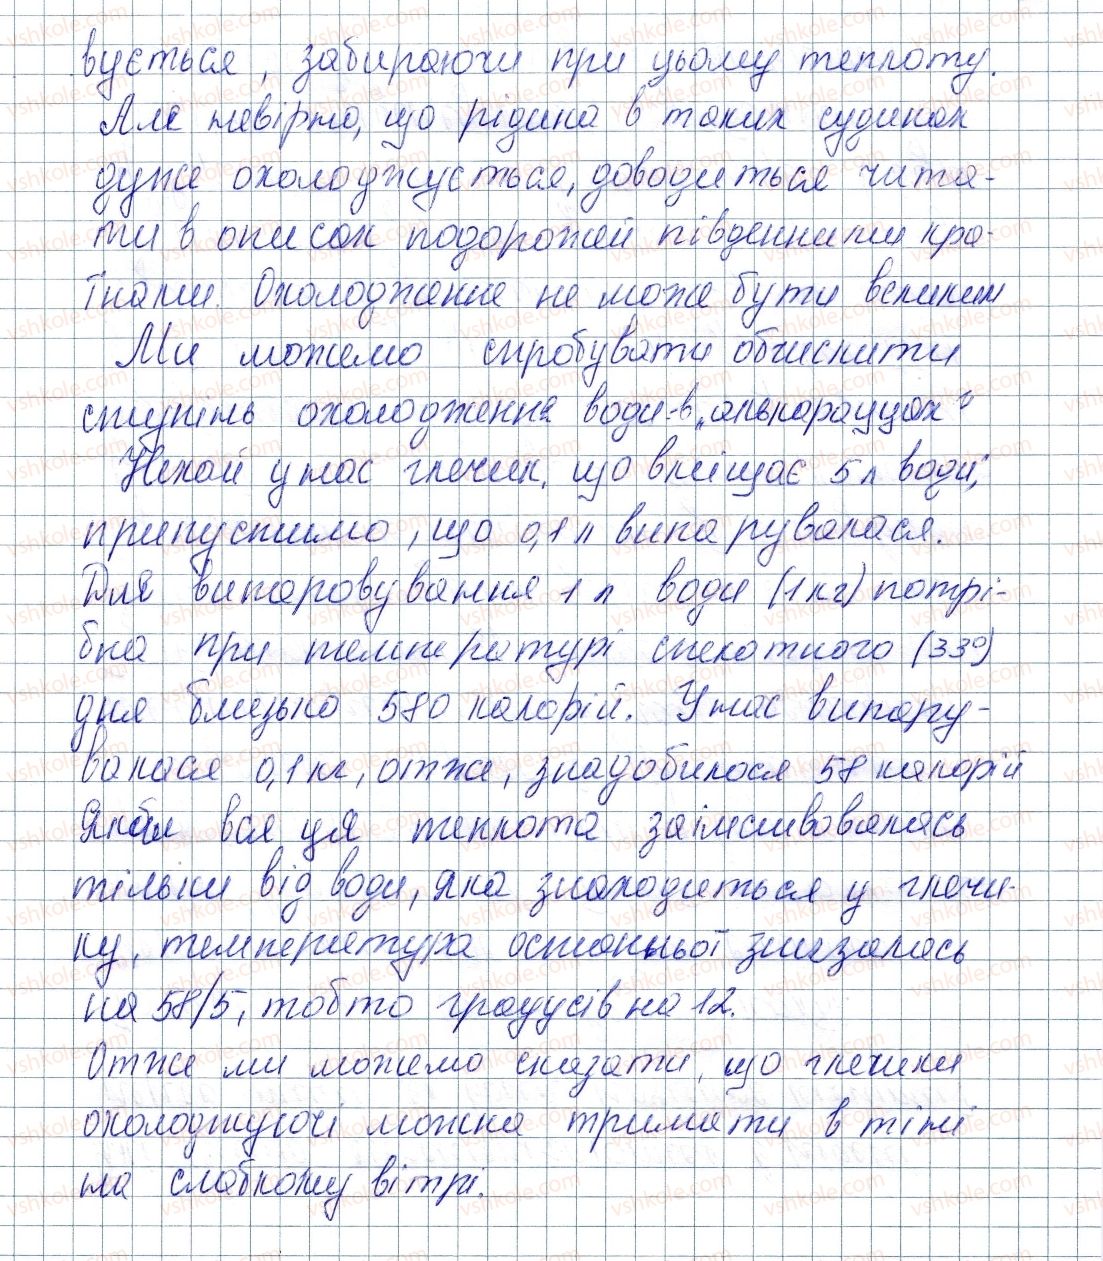 вується, забираючи при цьому теплоту.
Але невірно, що рідина в таких судинах
дуже охолоджується, доводиться чита-
ти в описах подорожей південними кра-
їнами. Охолодження не може бути великим
Ми можемо спробувати обчислити
ступінь охолодження води в „алькарацах"
Нехай у нас глечик, що вміщає 5 л води;
припустимо, що 0,1 л випарувалася.
Для випаровування 1 л води (1 кг) потрі-
бна при температурі спекотного (33°)
дня близько 580 калорій. У нас випару-
валася 0,1 кг, отже, знадобилося 58 калорій
Якби вся ця теплота заімствовалась
тільки від води, яка знаходиться у глечи-
ку, температура останньої знизалась
на 58/5, тобто градусів на 12.
Отже ми можемо сказати, що глечики
охолоджуючі можна тримати в тіні
на слабкому вітрі.